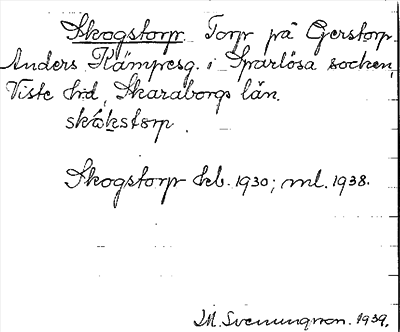 Skogstorp Torp på Gerstorp
Anders Kämpesg. i Sparlösa socken,
Viste hd, Skaraborgs län.
skåkstørp.
Skogstorp Jkb. 1930; ml. 1938.
I.M. Svenungsson. 1939.